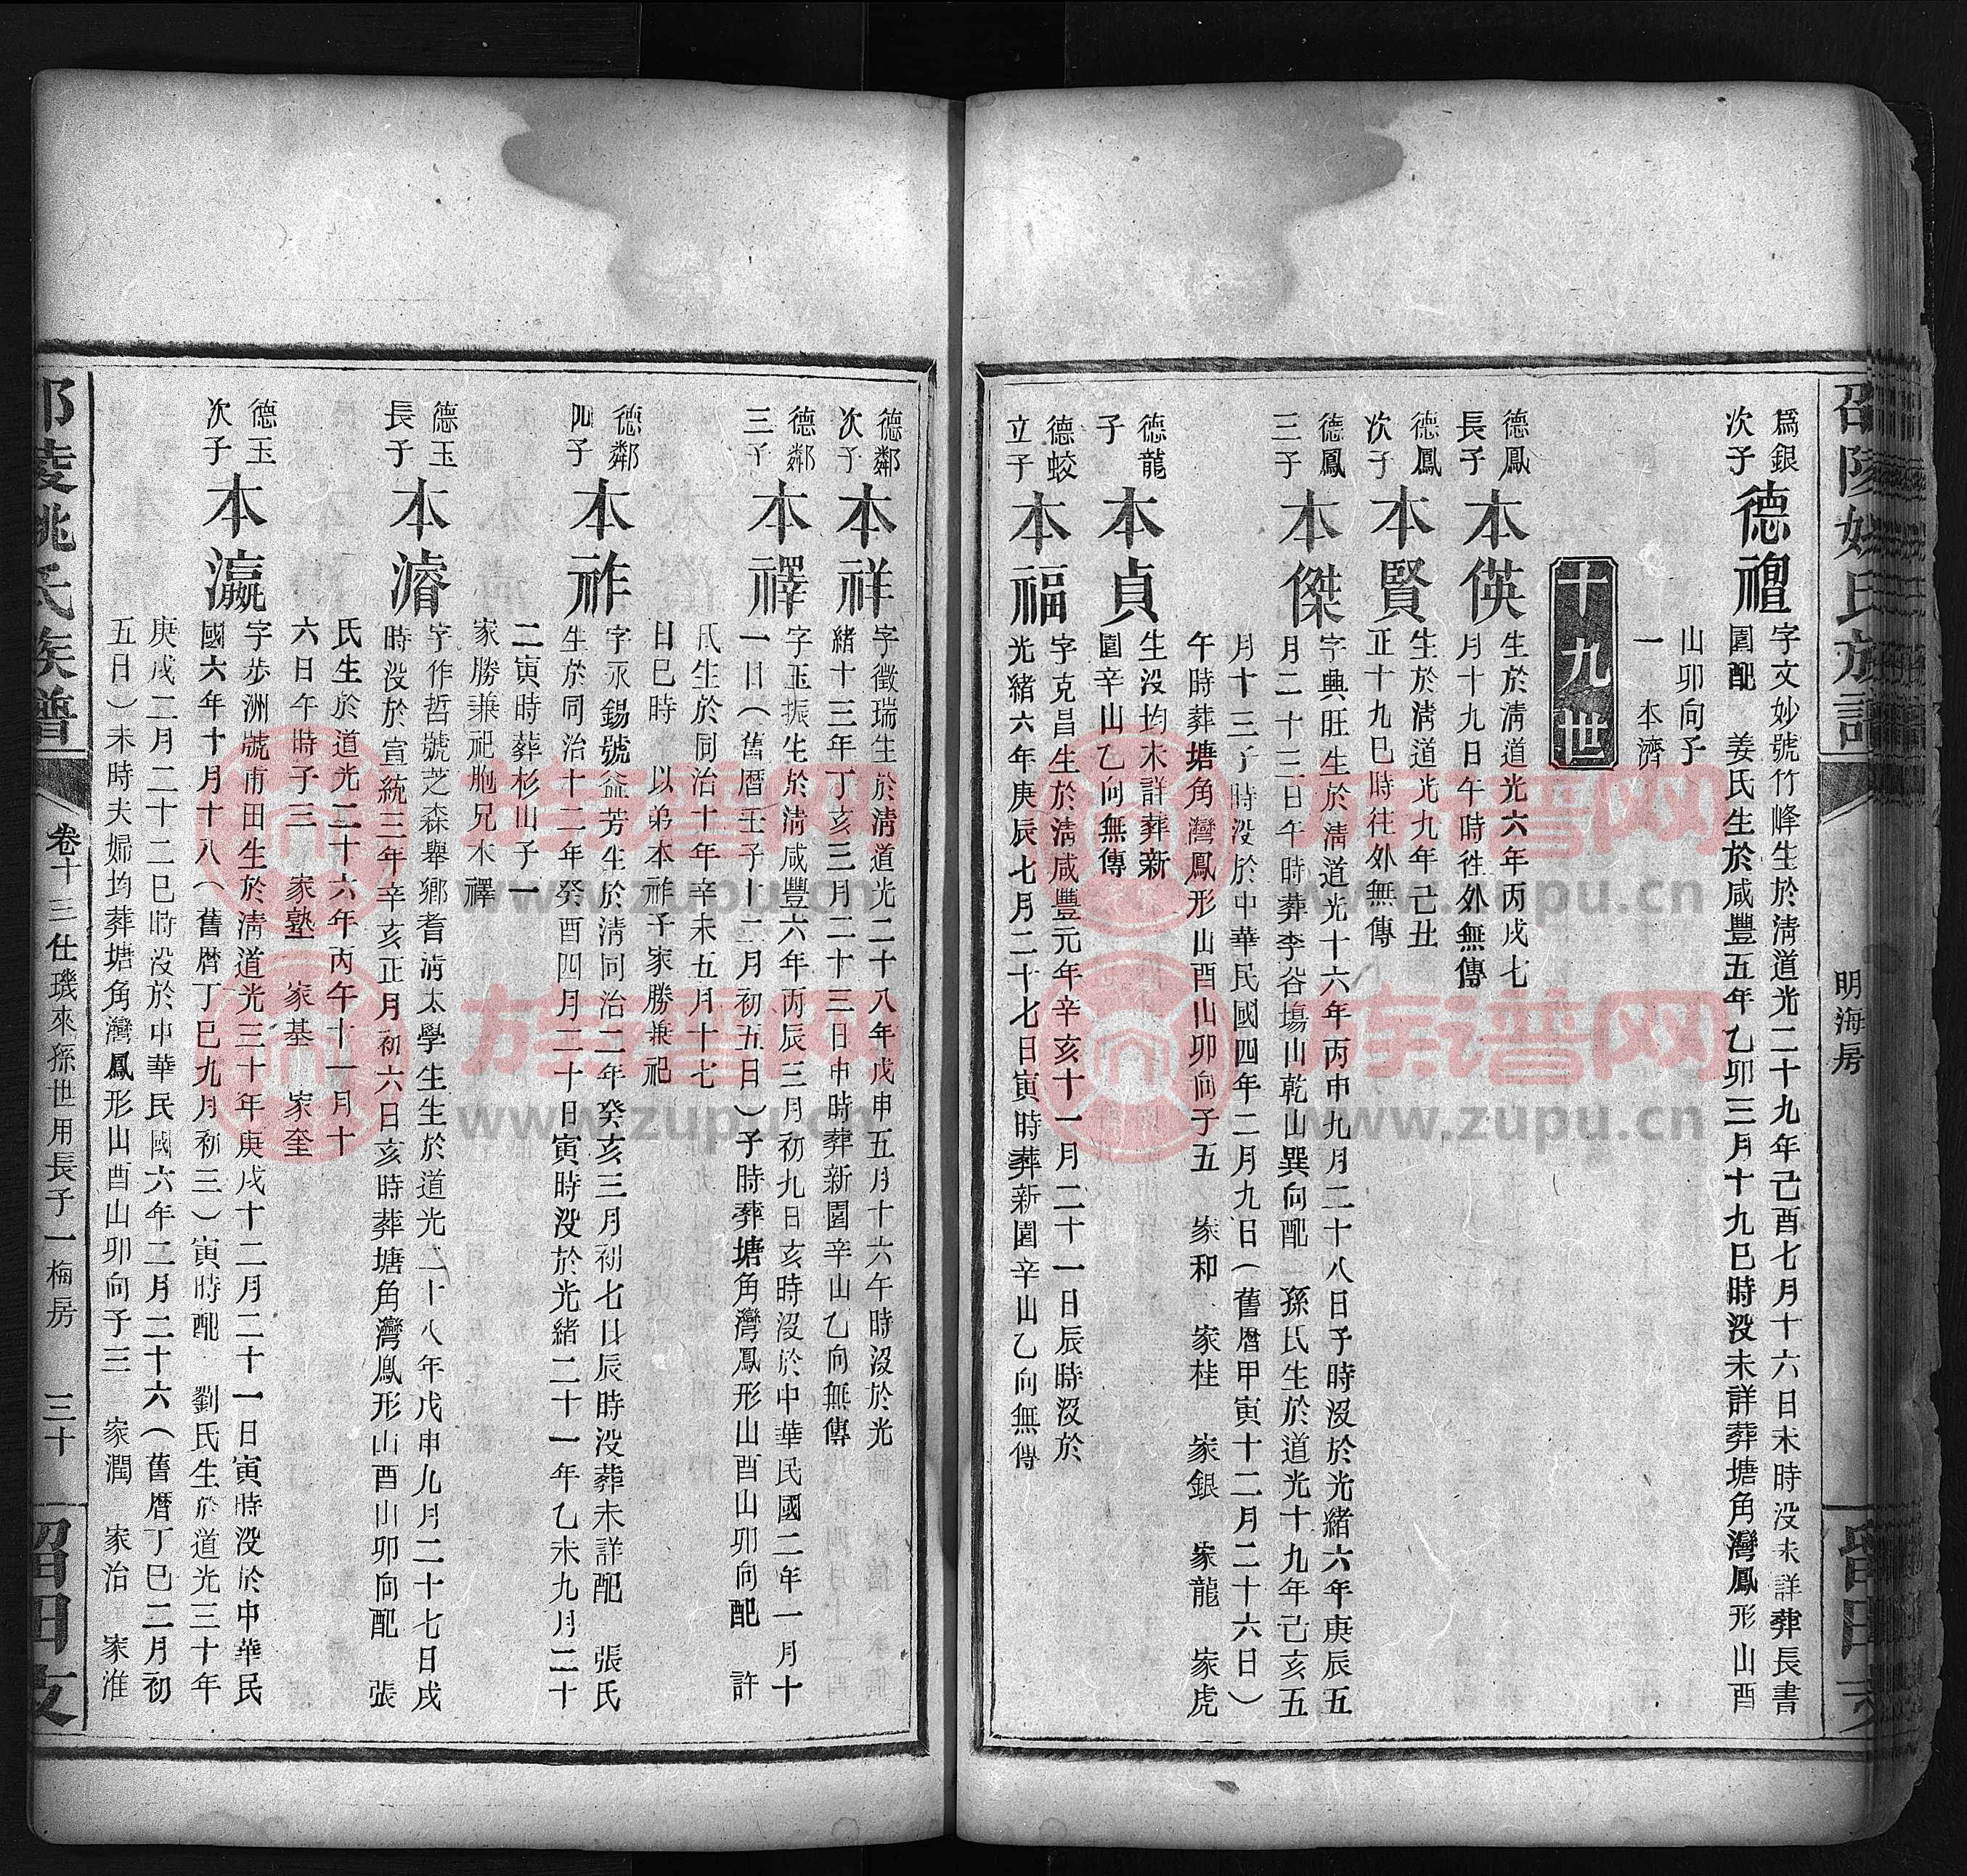 邵陵姚氏族譜
明海房
留田支
爲銀
次子
德䄠
字文妙號竹峰生於清道光二十九年己酉七月十六日未時没未詳葬長書
園配 姜氏生於咸豐五年乙卯三月十九巳時没未詳葬塘角灣鳳形山酉
山卯向子
一 本濟
十九世
德鳳
長子
本偀
生於清道光六年丙戌七
月十九日午時徃外無傳
德鳳
次子
本賢
生於清道光九年己丑
正十九巳時往外無傳
德鳳
三子
本傑
字興旺生於清道光十六年丙申九月二十八日子時没於光緒六年庚辰五
月二十三日午時葬李谷塲山乾山巽向配 孫氏生於道光十九年己亥五
月十三子時没於中華民國四年二月九日(舊曆甲寅十二月二十六日)
午時葬塘角灣鳳形山酉山卯向子五 家和 家桂 家銀 家龍 家虎
德龍
子
本貞
生没均未詳葬新
園辛山乙向無傳
德蛟
立子
本福
字克昌生於清咸豐元年辛亥十一月二十一日辰時没於
光緒六年庚辰七月二十七日寅時葬新園辛山乙向無傳
德鄰
次子
本祥
字徵瑞生於清道光二十八年戊申五月十六午時没於光
緒十三年丁亥三月二十三日申時葬新園辛山乙向無傳
德鄰
三子
本禪
字玉振生於清咸豐六年丙辰三月初九日亥時没於中華民國二年一月十
一日(舊曆壬子十二月初五日)子時葬塘角灣鳳形山酉山卯向配 許
氏生於同治十年辛未五月十七
日巳時 以弟本祚子家勝兼祀
德鄰
四子
本祚
字永錫號益芳生於清同治二年癸亥三月初七日辰時没葬未詳配 張氏
生於同治十二年癸酉四月二十日寅時没於光緒二十一年乙未九月二十
二寅時葬杉山子一
家勝兼祀胞兄本禪
德玉
長子
本濬
字作哲號芝森舉鄉耆清太學生生於道光二十八年戊申九月二十七日戌
時没於宣統三年辛亥正月初六日亥時葬塘角灣鳳形山酉山卯向配 張
氏生於道光二十六年丙午十一月十
六日午時子三 家塾 家基 家奎
德玉
次子
本瀛
字步洲號甫田生於清道光三十年庚戌十二月二十一日寅時没於中華民
國六年十月十八(舊曆丁巳九月初三)寅時配 劉氏生於道光三十年
庚戌二月二十二巳時没於中華民國六年二月二十六(舊曆丁巳二月初
五日)未時夫婦均葬塘角灣鳳形山酉山卯向子三 家潤 家治 家淮
邵陵姚氏族譜
卷十三仕璣來孫世用長子一梅房 三十
留田支
族谱网
www.zupu.cn
族谱网
www.zupu.cn
族谱网
www.zupu.cn
族谱网
www.zupu.cn